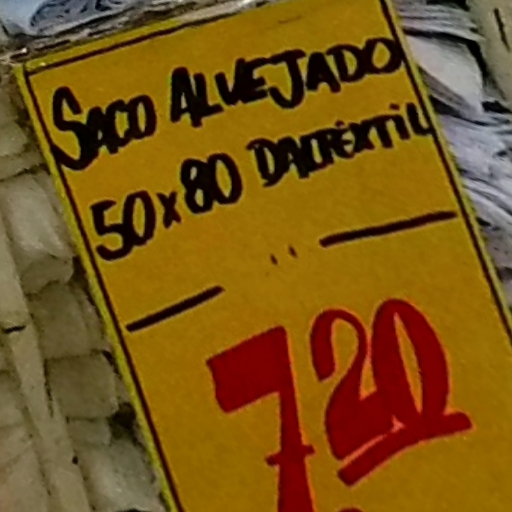 SACO ALVEJADO
50x80 DALTÉXTIL
720